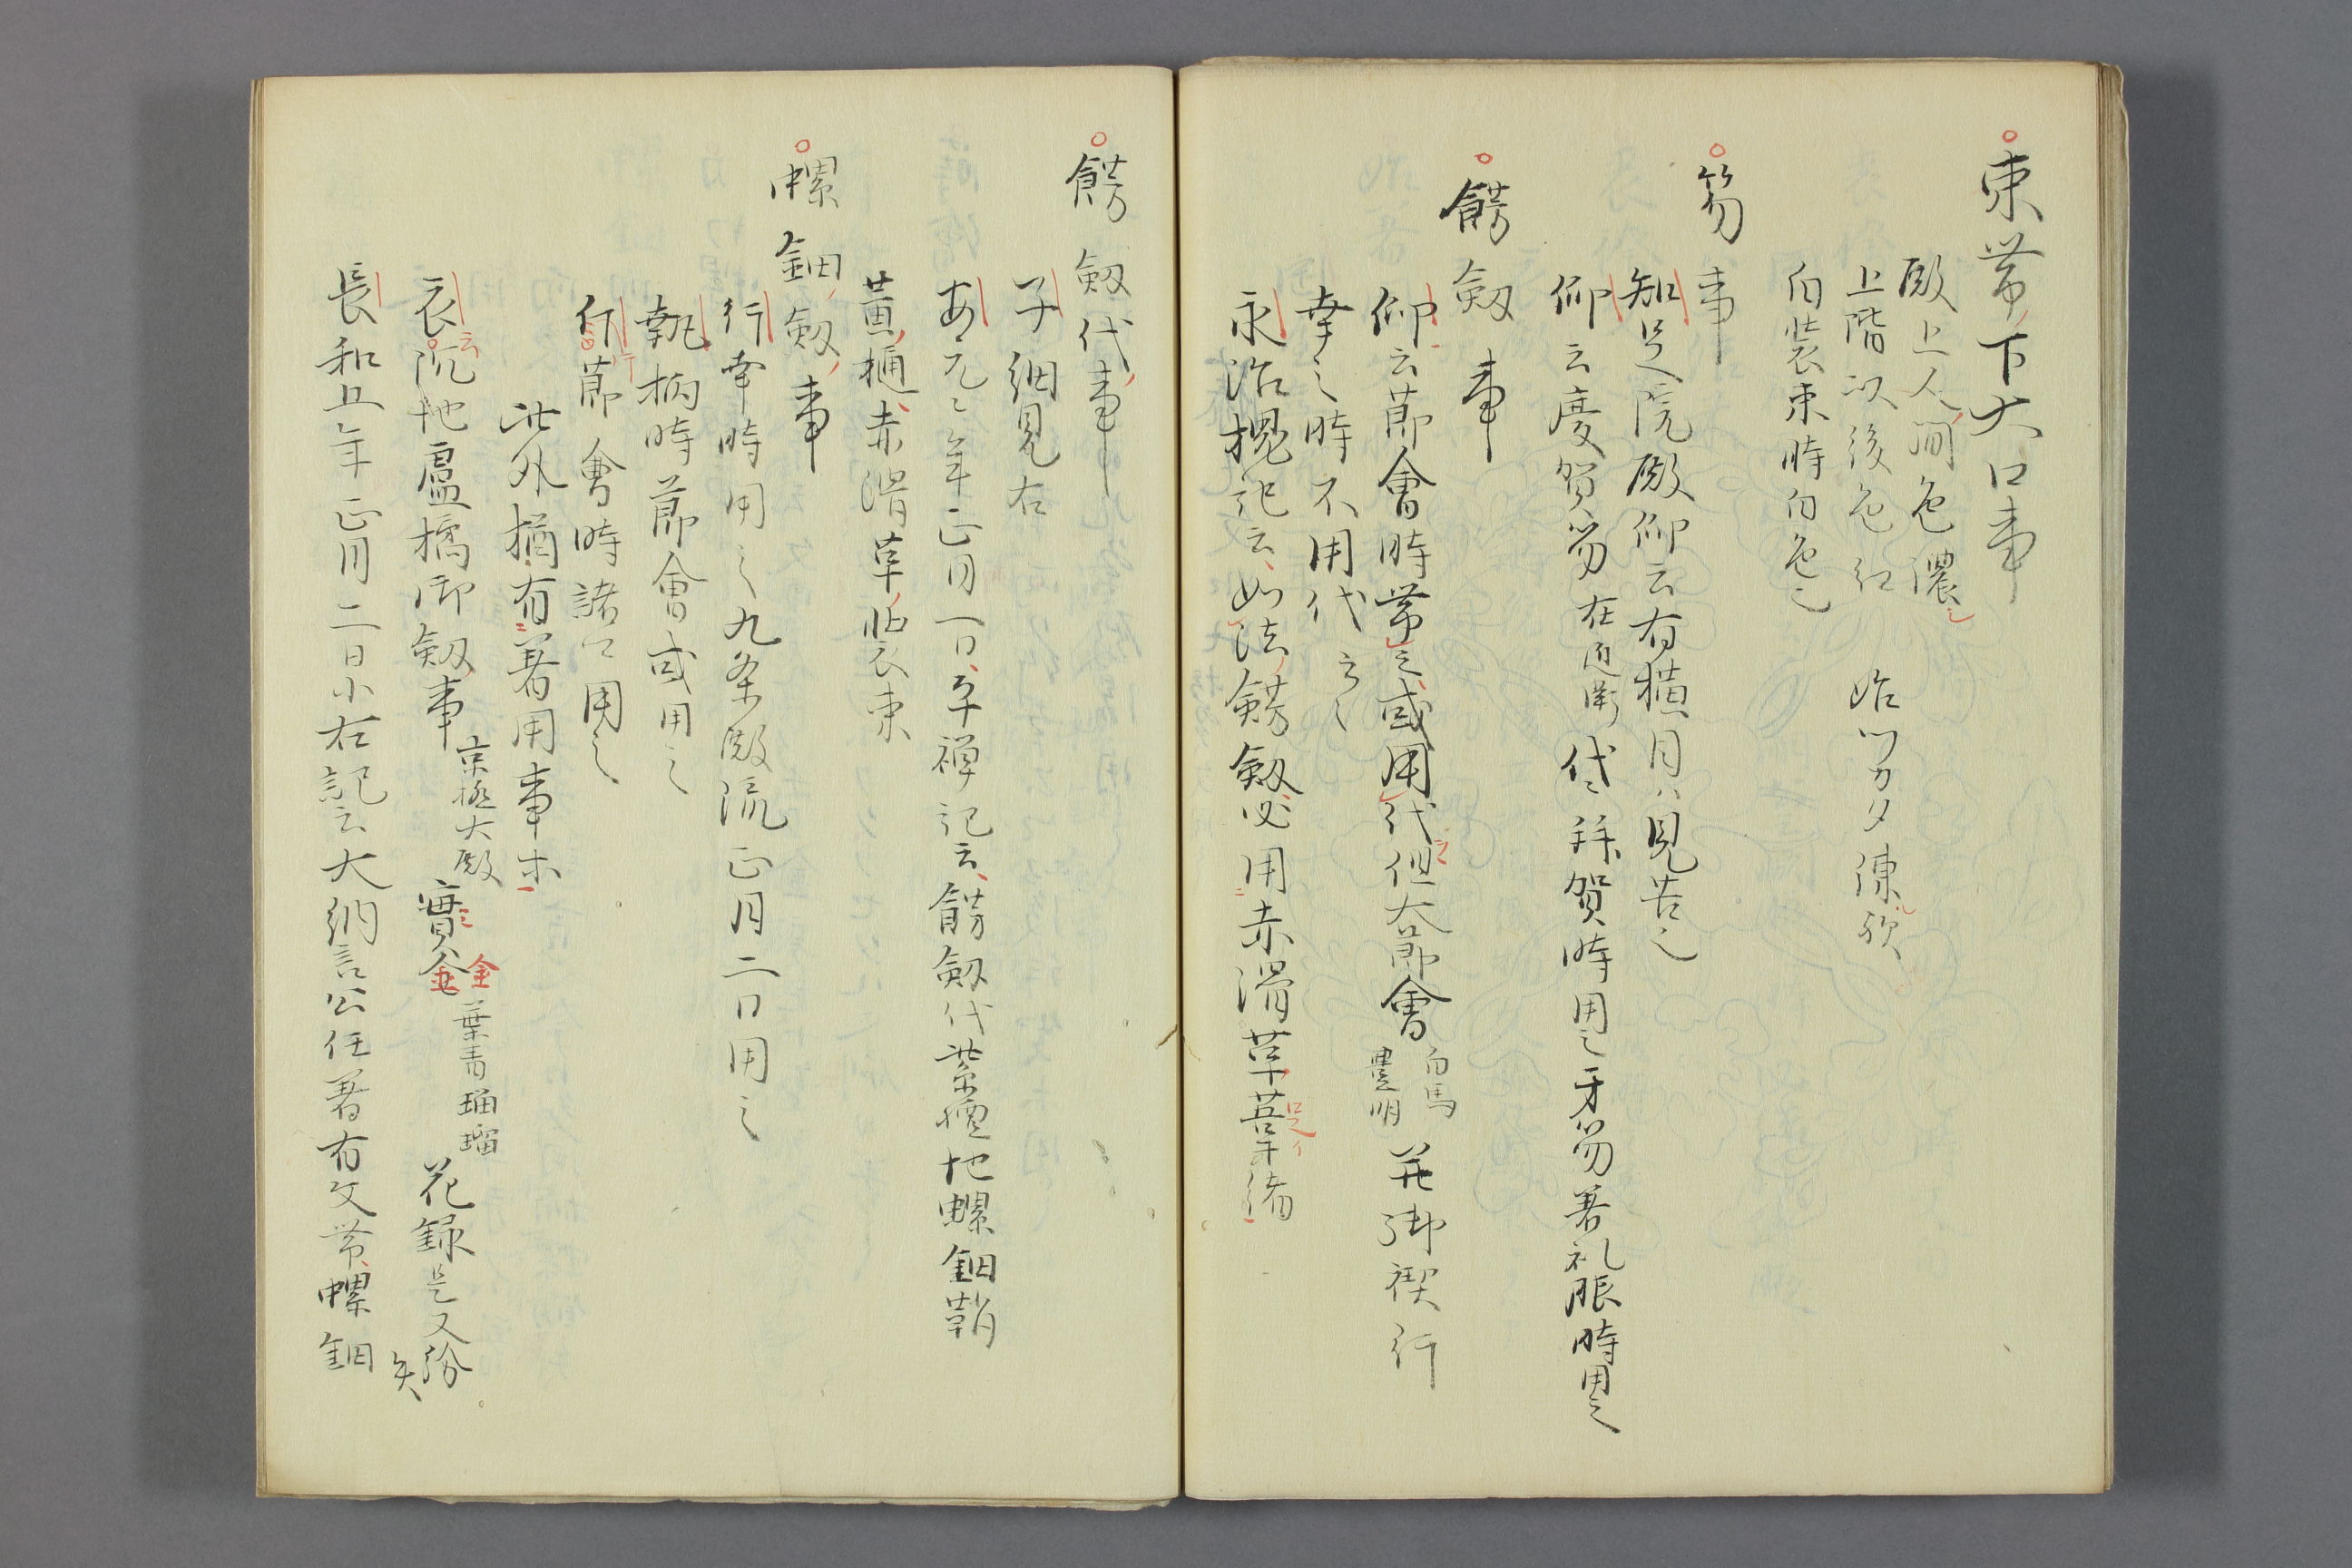 束帯下大口事
殿上人間色濃之
上階以後色紅 始ツカタ練歟
白装束時白色之
笏事
知足院殿仰云有横目ハ見苦之
仰云慶賀笏在近衛代々拝賀時用之牙笏著礼服時用之
餝剱事
仰云節會時帯之或用代但大節會
白馬
豊明
并御禊行
幸之時不用代云々
永治槐記云如法餝剱必用赤滑革菩平緒
餝剱代事
子細見右
安元々年正月一日平禅記云餝剱代紫檀地螺鈿鞘
黄樋赤滑革帖装束
螺鈿剱事
行幸時用之九条殿流正月二日用之
執柄時節會或用之
行節會時諸司用之
此外猶有著用事木
衣云沉地盧橘御剱事
京極大殿
實金
葉青瑠瑠
花録是又紛
失
長和五年正月二日小右記云大納言公任著有文帯螺鈿